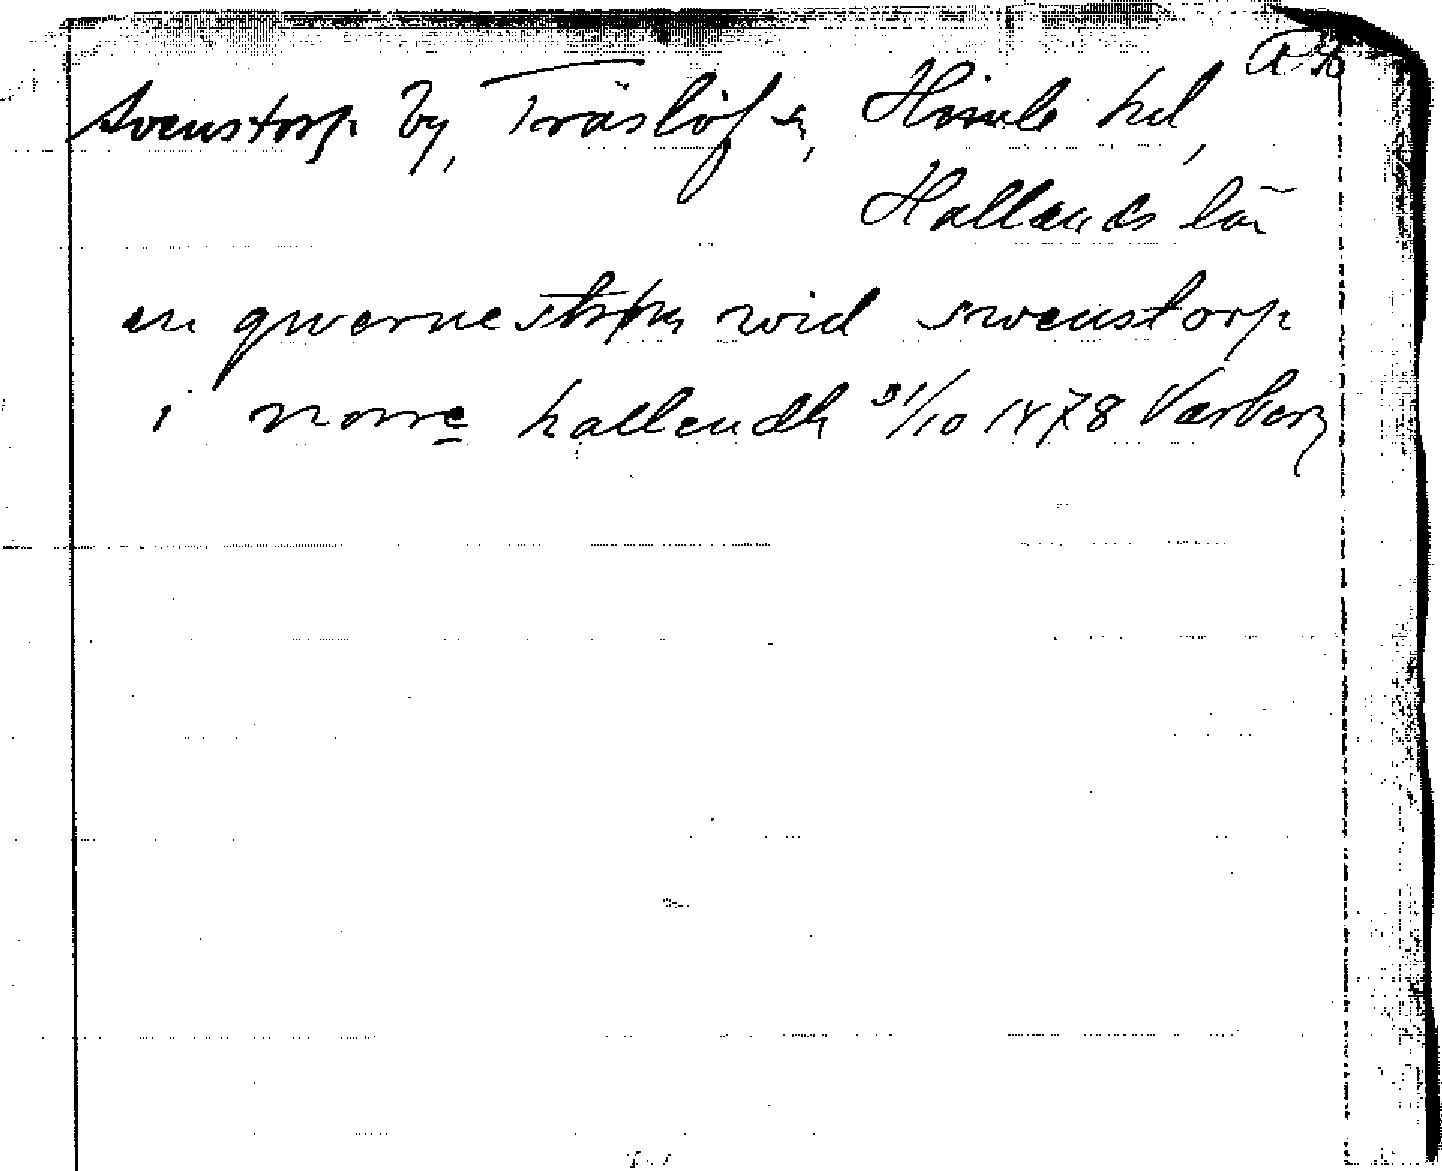 Svenstorp by, Träslöf sn, Himle hd,
Hallands län
en qwerne ström wid swenstorp
i norre hallandh 31/10 1478 Varberg